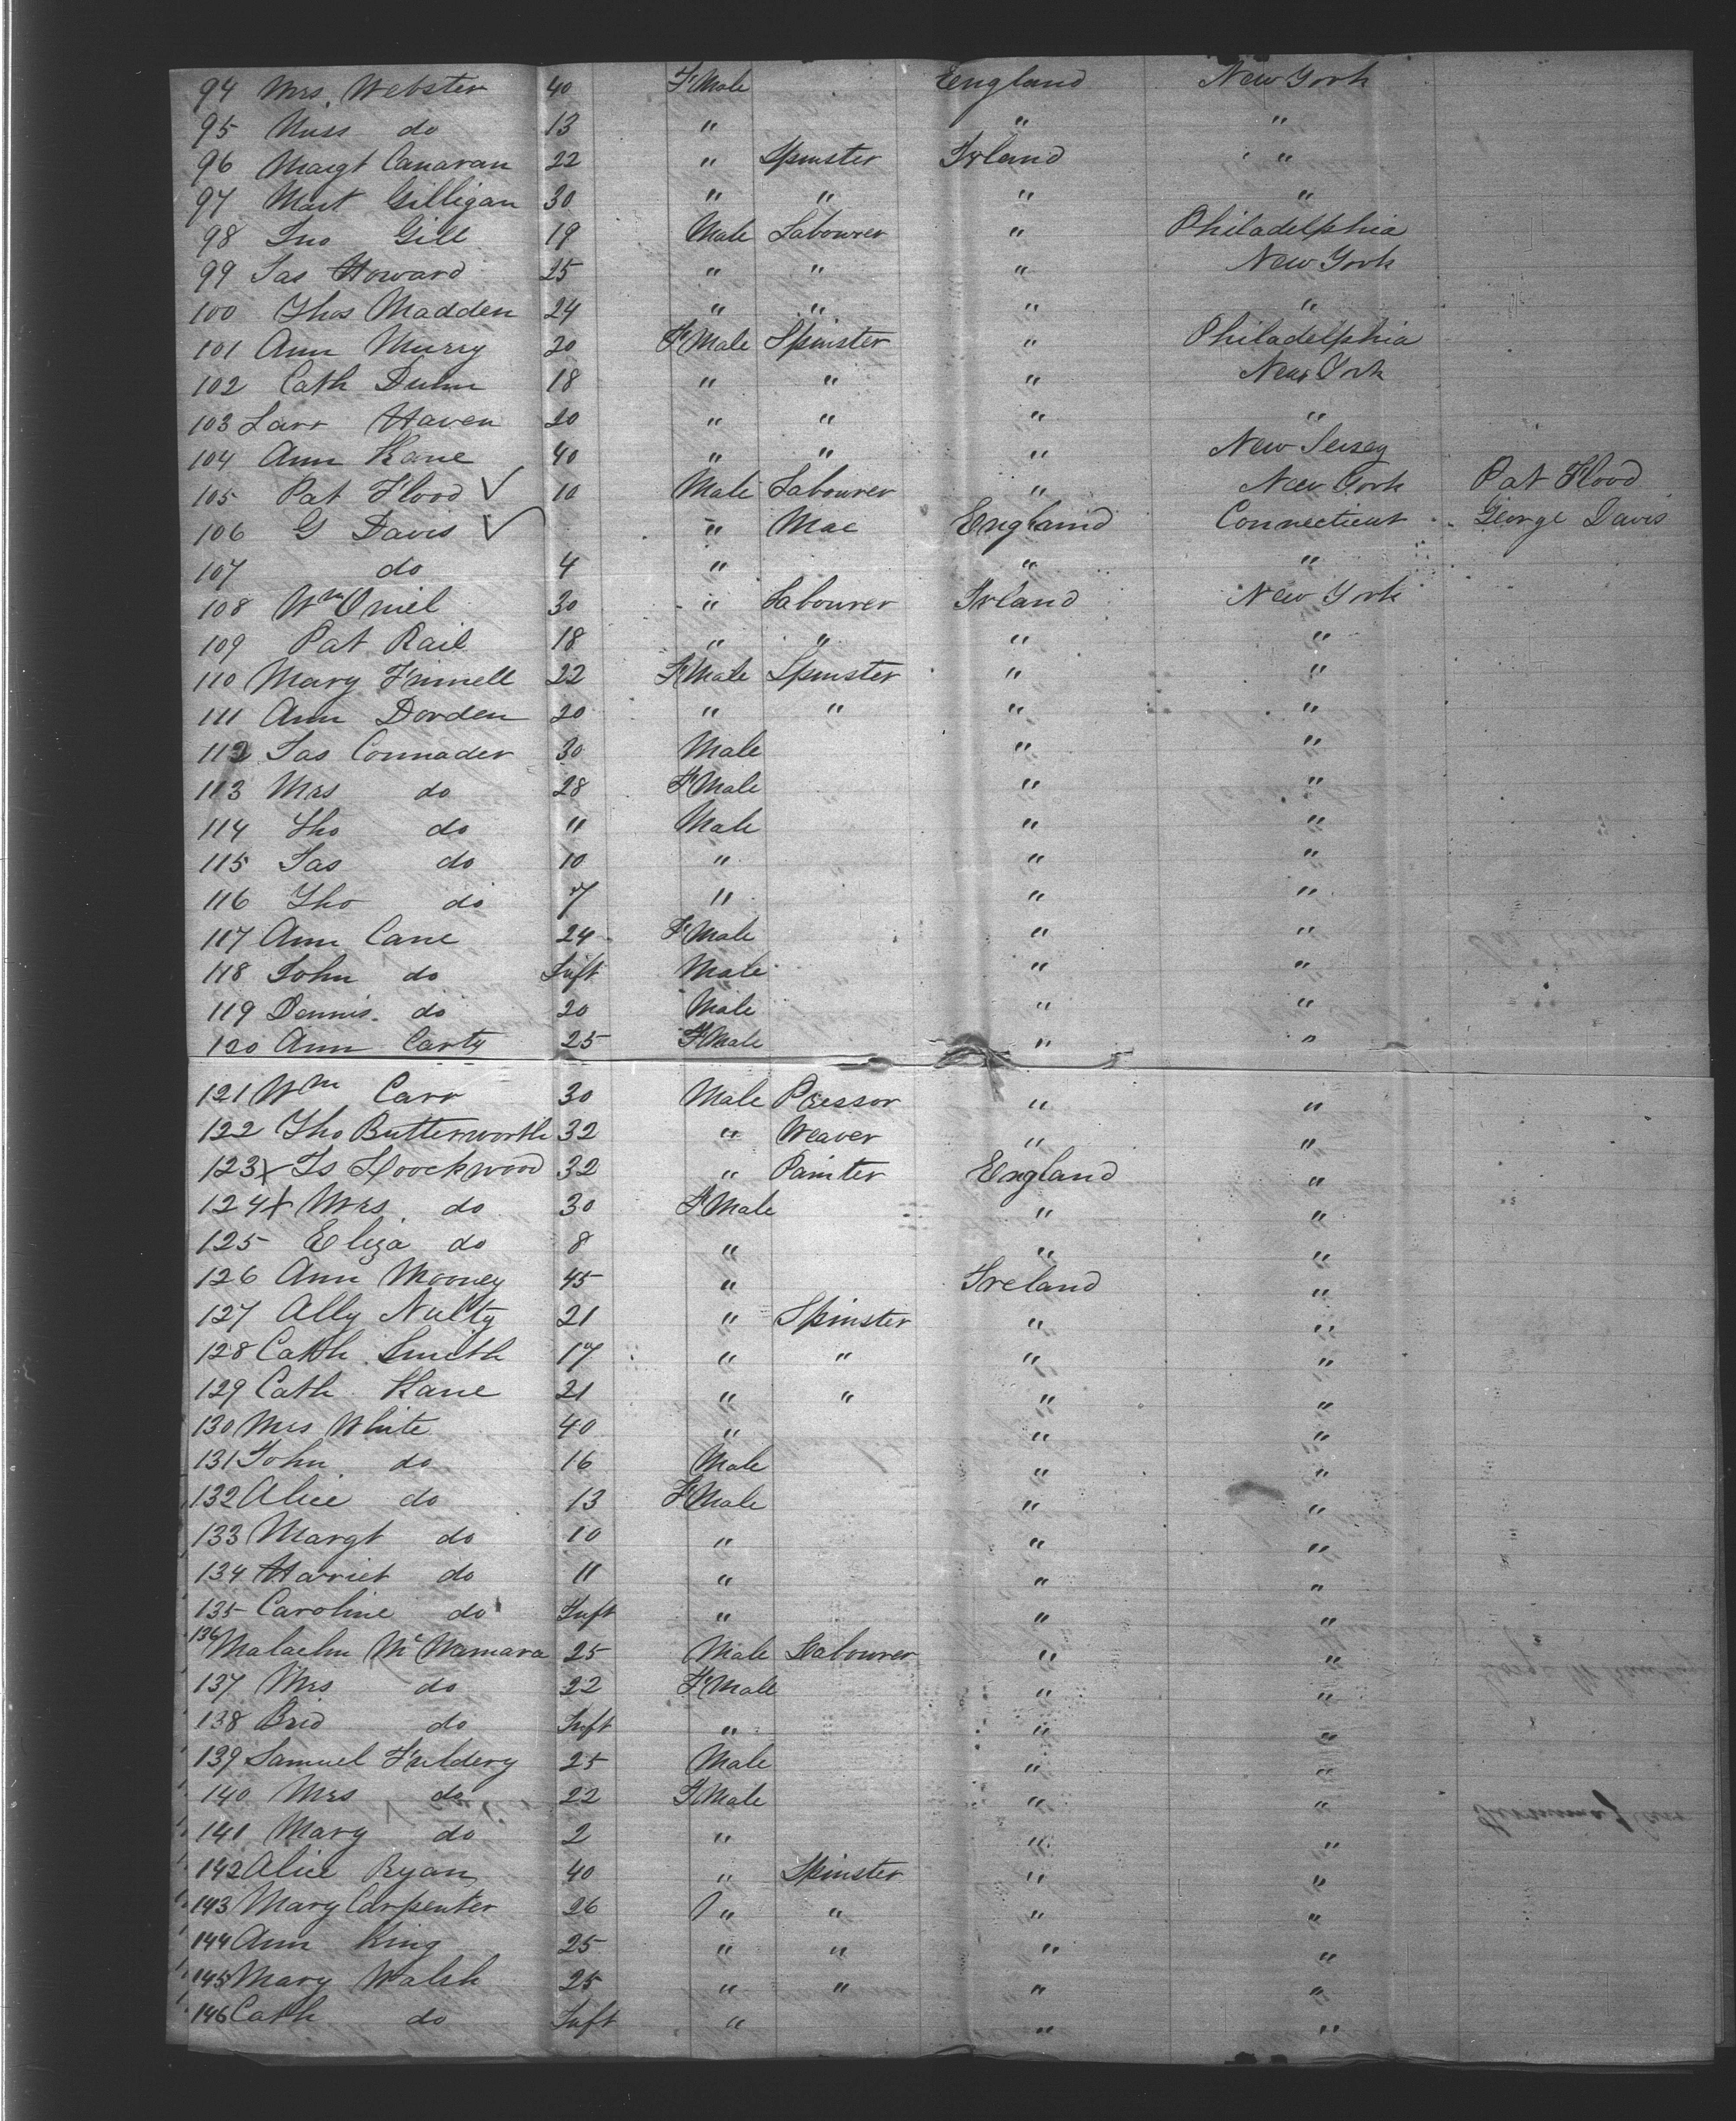 94 Mrs. Webster 40 F Male England New York
95 Miss do 13 " " "
96 Margt Canavan 22 " Spinster Irland "
97 Mart Gilligan 30 " " " "
98 Jno Gill 19 Male Labourer " Philadelphia
99 Jas Howard 25 " " " New York
100 Thos Madden 24 " " " "
101 Ann Murry 20 F Male Spinster " Philadelphia
102 Cath Dunn 18 " " " New York
103 Larr Haven 20 " " " "
104 Ann Kane 40 " " " New Jersey
105 Pat Flood ✓ 10 Male Labourer " New York Pat Flood
106 G Davis ✓ " Mac England Connecticut George Davis
107 do 4 " " "
108 Wm Oniel 30 " Labourer Irland New York
109 Pat Rail 18 " " " "
110 Mary Frinell 22 F Male Spinster " "
111 Ann Dorden 20 " " " "
112 Jas Connader 30 Male " "
113 Mrs do 28 F Male " "
114 Tho do 11 Male " "
115 Jas do 10 " " "
116 Tho do 7 " " "
117 Ann Cane 24 F Male " "
118 John do Inft Male " "
119 Dennis do 20 Male " "
120 Ann Carty 25 F Male " "
121 Wm Carr 30 Male Pressor " "
122 Tho Butterworth 32 " Weaver " "
123 x Is Loockwood 32 " Painter England "
124 x Mrs do 30 F Male " "
125 Eliza do 8 " " "
126 Ann Mooney 45 " Ireland "
127 Ally Nulty 21 " Spinster " "
128 Cath Smith 17 " " " "
129 Cath Kane 21 " " " "
130 Mrs White 40 " " "
131 John do 16 Male " "
132 Alice do 13 F Male " "
133 Margt do 10 " " "
134 Harriet do 11 " " "
135 Caroline do Inft " " "
136 Malachi McNamara 25 Male Labourer " "
137 Mrs do 22 F Male " "
138 Brid do Inft " " "
139 Samuel 25 Male " "
140 Mrs do 22 F Male " "
141 Mary do 2 " " "
142 Alice Ryan 40 " Spinster " "
143 Mary Carpenter 26 " " " "
144 Ann King 25 " " " "
145 Mary Walsh 25 " " " "
146 Cath do Inft " " "